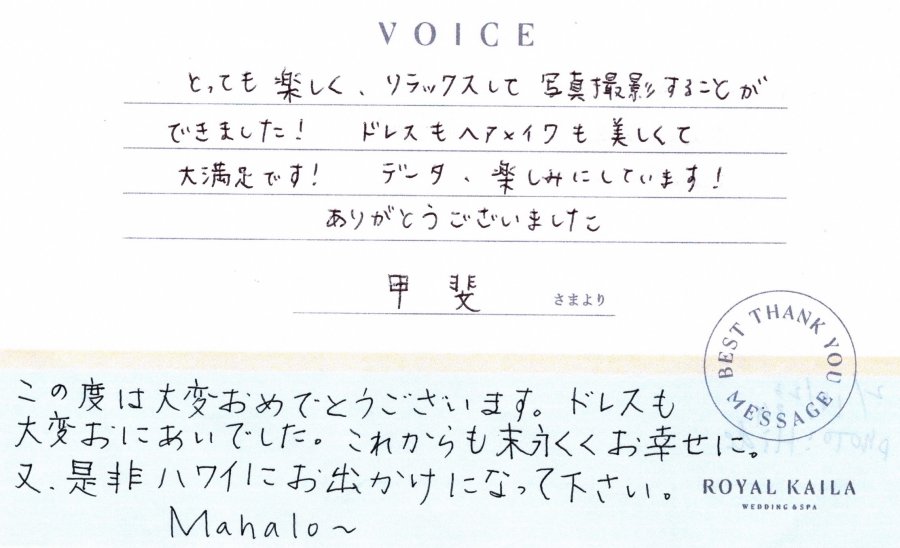 VOICE
とっても楽しく、リラックスして 写真撮影することが
できました! ドレスもヘアメイクも美しくて
大満足です! データ、楽しみにしています!
ありがとうございました
甲斐 さまより
BEST THANK YOU MESSAGE
この度は大変おめでとうございます。ドレスも
大変おにあいでした。これからも末永くお幸せに。
又、是非ハワイにお出かけになって下さい。
Mahalo~
ROYAL KAILA
WEDDING & SPA